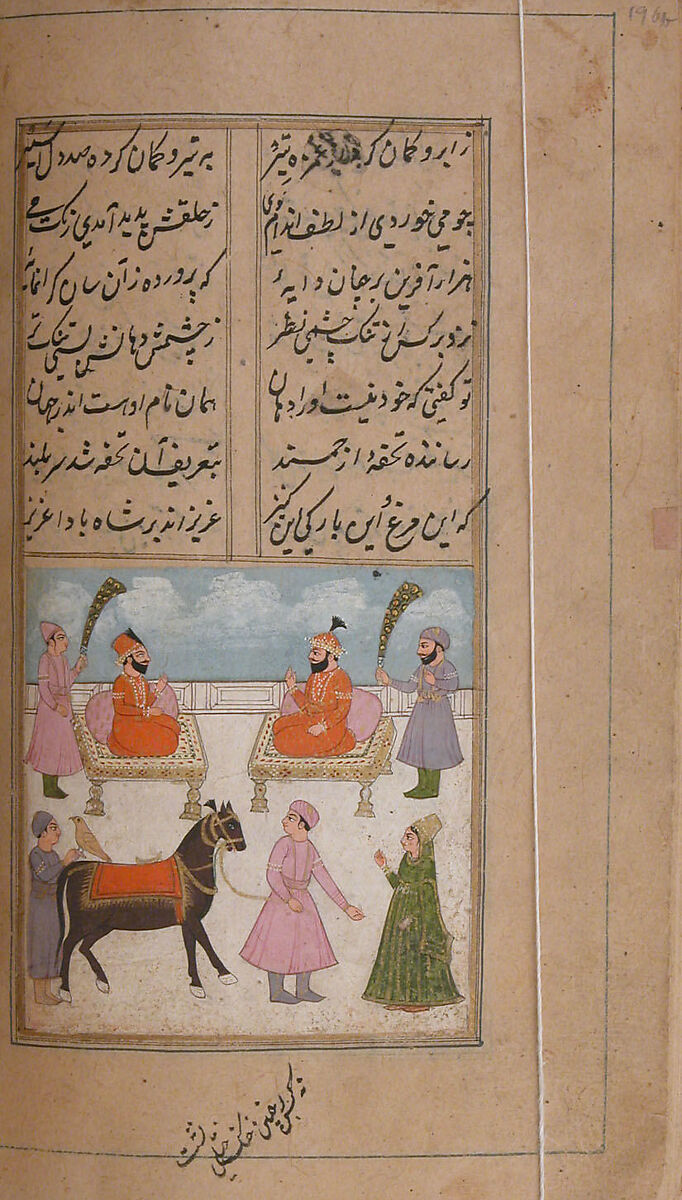 ز ابرو کمان کر ه تیز به تیر و کمان کرده صد دل
چو می خوردی از لطف اندام وی ز حلقش پدید آمدی رنگ می
هزار آفرین بر چنان دایهٔ که پرورده زآن سان گرانمایهٔ
نزد بر کس از تنگ چشمی نظر ز چشمش دهانش بسی تنگ تر
تو گفتی که خود نیست او را دهان همان نام اوست اندر جهان
رسانندهٔ تحفهٔ ارجمند بتعریف آن تحفه شد سر بلند
که این مرغ و این بارگی این کنیز عزیزاند بر شاه بادا عزیز
196